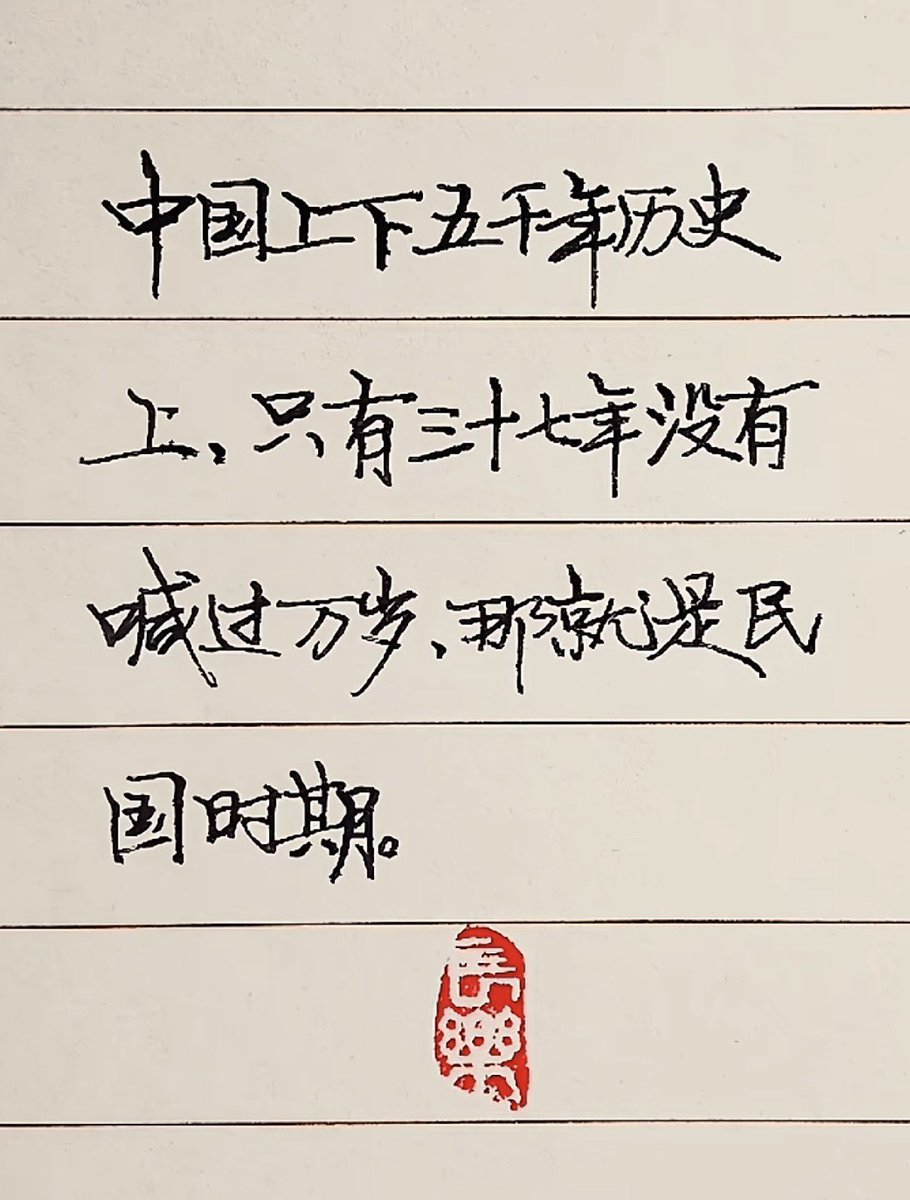 中国上下五千年历史
上、只有三十七年没有
喊过万岁、那就是民
国时期。
長樂